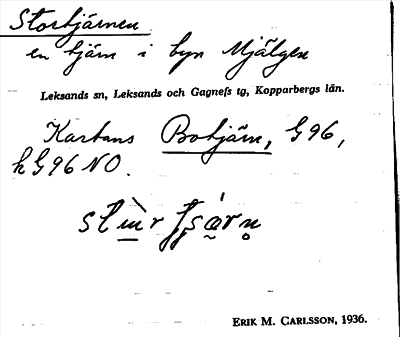 Stortjärnen
en tjärn i byn Mjälgen
Leksands sn, Leksands och Gagnefs tg, Kopparbergs län.
Kartans Botjärn, G96,
k G96 NO.
ERIK M. CARLSSON, 1936.